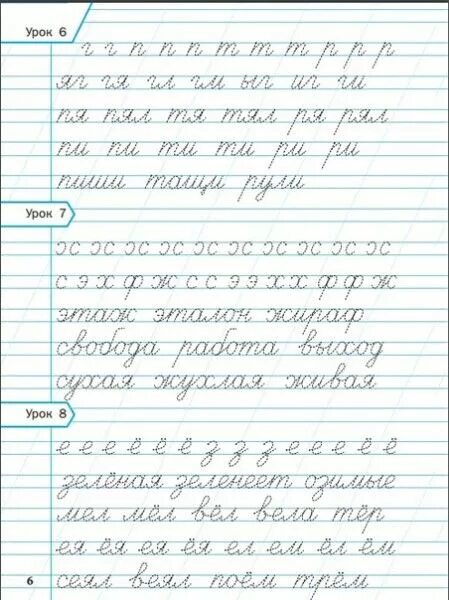 Урок 6
г г п п п т т т р р р
яг гя гл гм ыг иг ги
пя пял тя тял ря рял
пи пи ти ти ри ри
пиши тащи рули
Урок 7
ɔс ɔс ɔс ɔс ɔс ɔс ɔс ɔс ɔс ɔс
с э х ф ж с с э э х х ф ф ж
этаж эталон жираф
свобода работа выход
сухая жухлая живая
Урок 8
е е е ё ё ё з з з е е е ё ё
зелёная зеленеет озимые
мел мёл вёл вела тёр
ея ёя ея ёя ел ем ёл ём
сеял веял поём трём
6